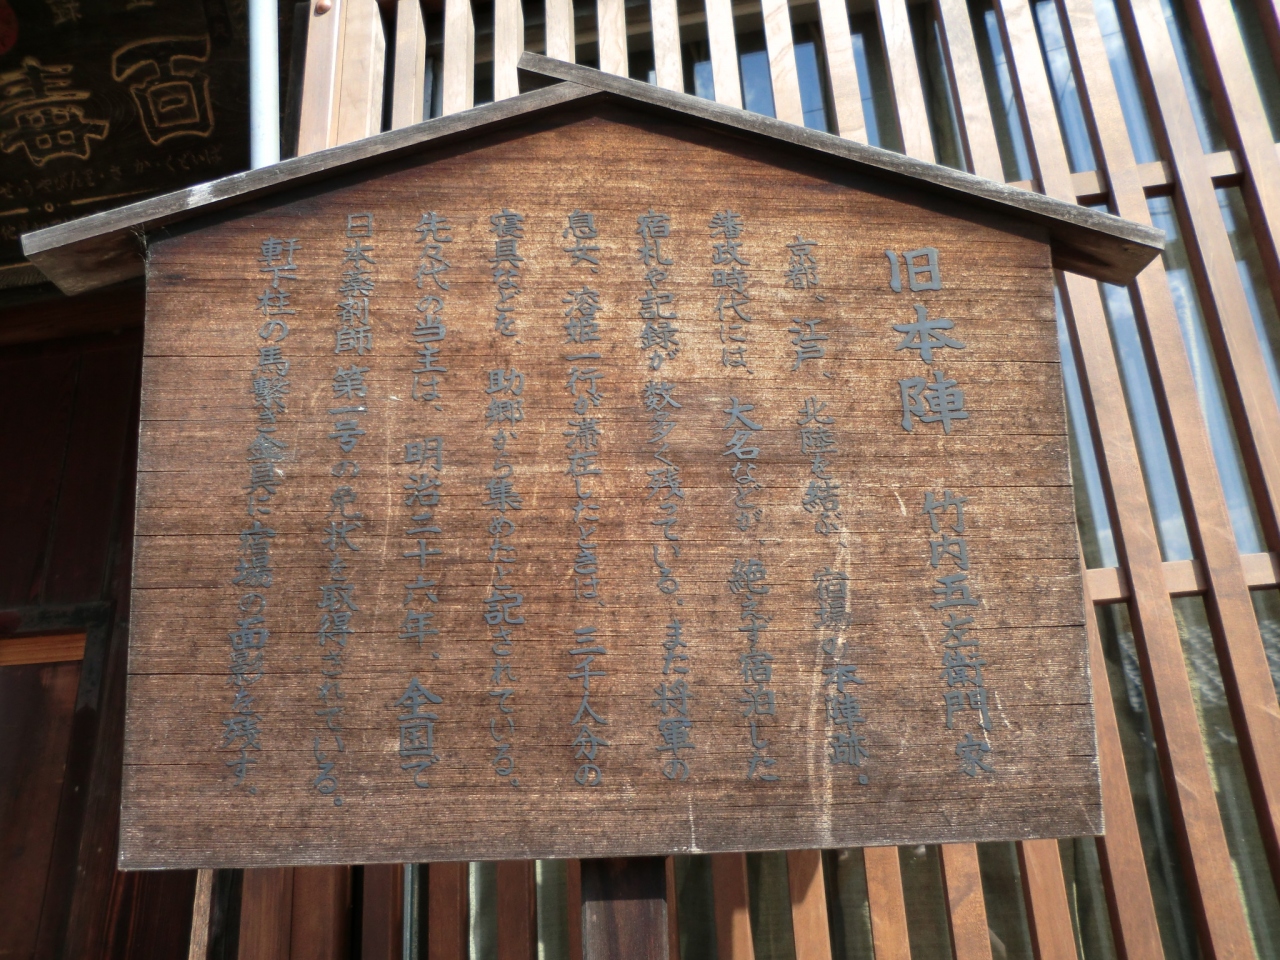 旧本陣 竹内五左衛門家
京都、江戸、北陸を結ぶ、宿場の本陣跡。
藩政時代には、大名などが、絶えず宿泊した
宿札や記録が数多く残っている。また将軍の
息女、溶姫一行が滞在したときは、三千人分の
寝具などを、助郷から集めたと記されている。
先々代の当主は、明治二十六年、全国で
日本薬剤師第一号の免状を取得されている。
軒下柱の馬繋ぎ金具に宿場の面影を残す。